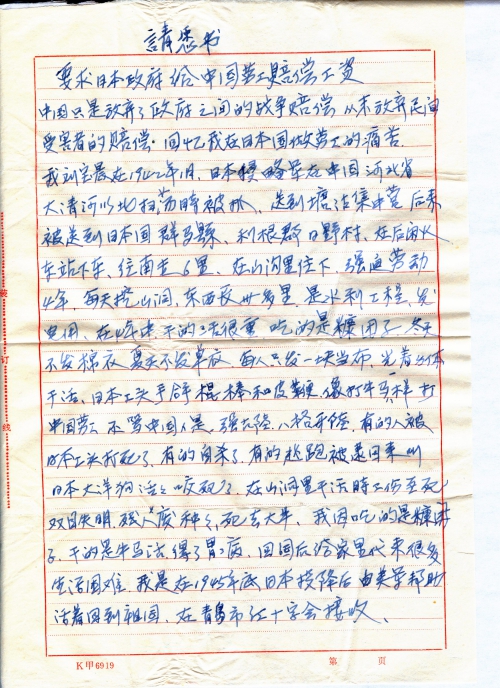 請愿书
要求日本政府给中国劳工赔偿工资
中国只是放弃了政府之间的战争赔偿从来放弃民间
受害者的赔偿.回忆我在日本国做劳工的痛苦
我刘宝晨在1942年1月,日本侵略军在中国河北省
大清河以北扫荡时被抓、送到塘沽集中营后来
被送到日本国群马縣、利根郡日野村、在后闲火
车站下车、往南走6里、在山沟里住下、强迫劳动
4年、每天挖山洞、东西长卅多里是水利工程、发
电用、在4年中、干的工很重吃的是糠团子冬天
不发棉衣夏天不发单衣每人只发一块当布、光着身体
干活、日本工头手拿棍棒和皮鞭、像打牛马一样打
中国劳工不骂中国人是、强大降、八格开路、有的人被
日本工头打死了、有的自杀了、有的逃跑被逮回来叫
日本大洋狗活活咬死了、在山洞里干活时工伤至死
双目失明、残人废种々、死去大半、我因吃的是糠团
子、干的是牛马活得了胃病、回国后给家里代来很多
生活困难、我是在1945年底日本投降后由美军帮助
活着回到祖国、在青岛市红十字会接收、
装
订
线
K甲6919
第 页